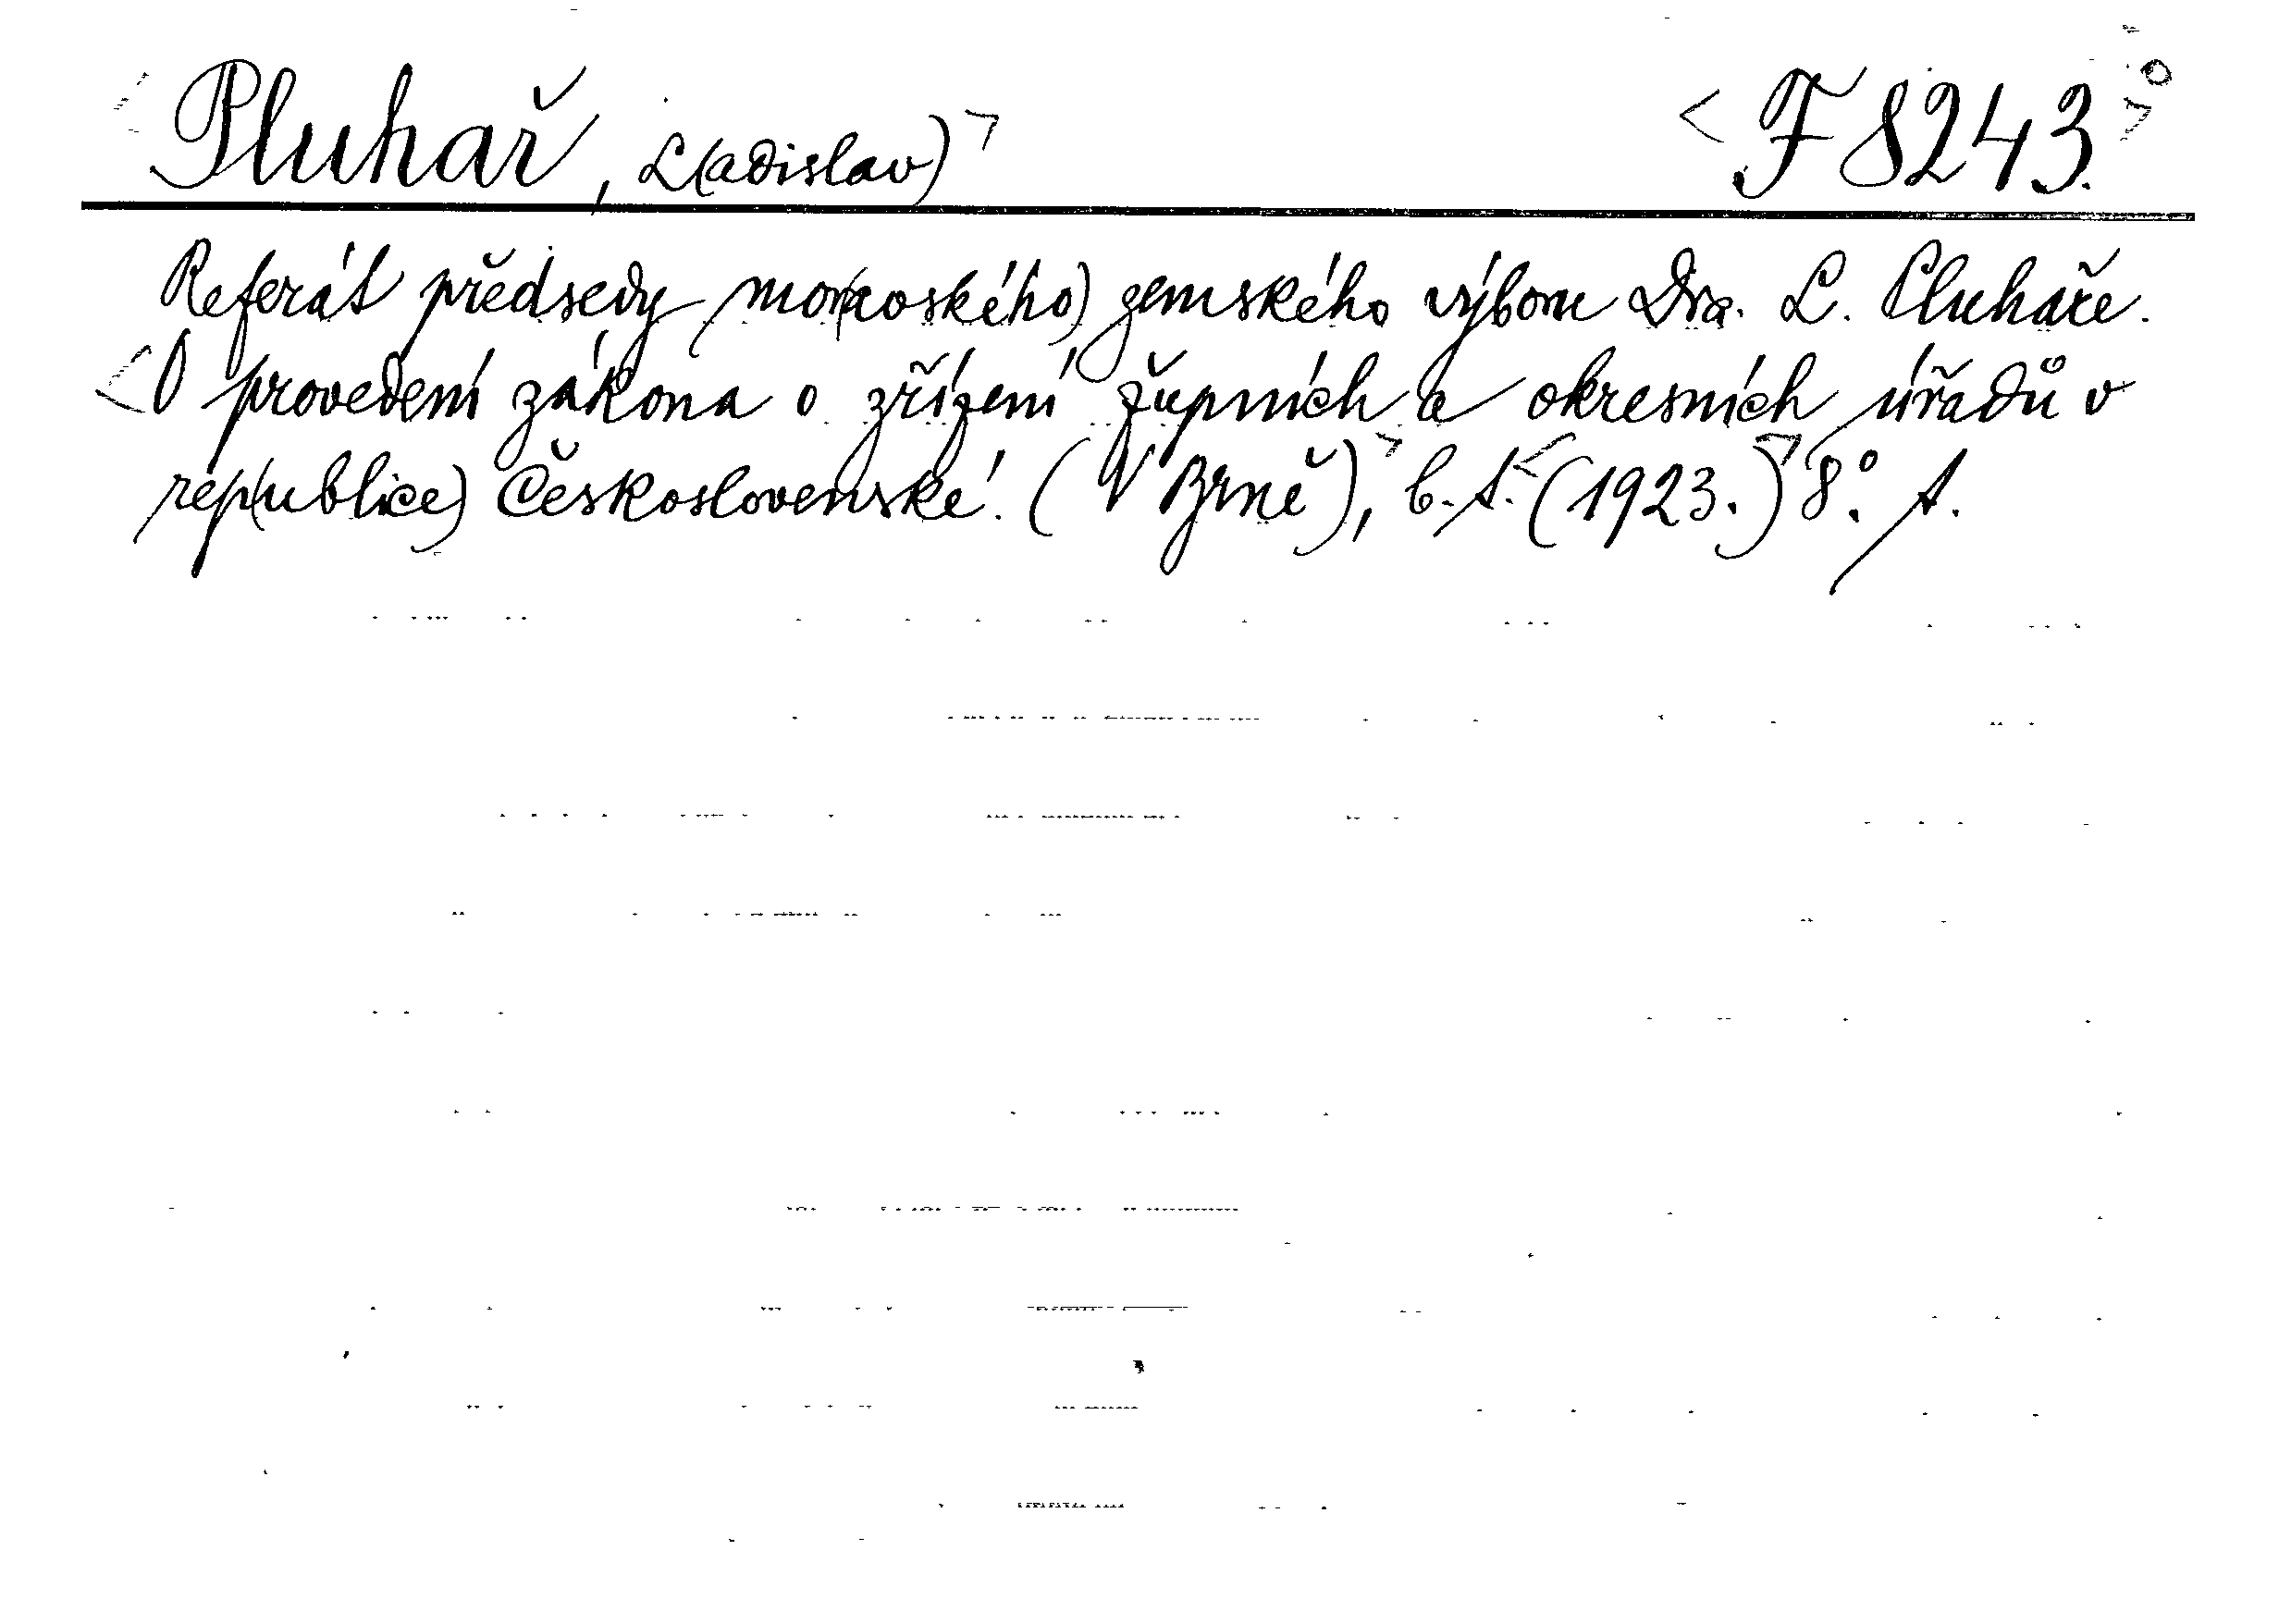 <Pluhař, L(adislav)> <F 8243.>°
Referát předsedy mor(avského) zemského výboru Dra. L. Pluhaře.
<O provedení zákona o zřízení župních a okresních úřadů v
rep(ublice) Československé. (V Brně),> b. t. <(1923.)> 8°. s.